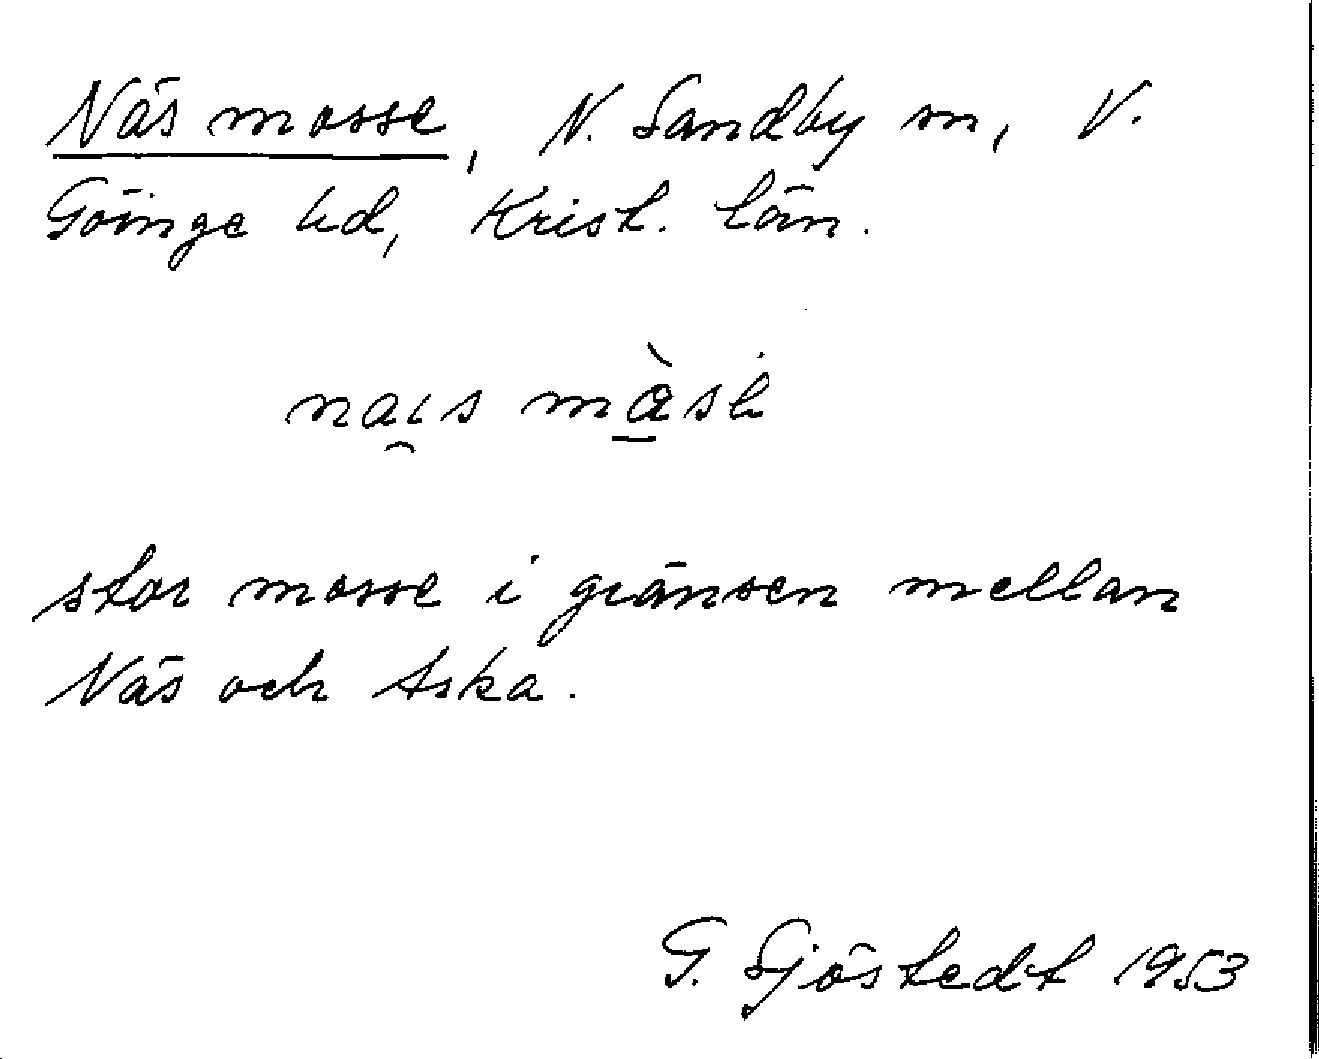 Näs mosse, N. Sandby sn, V.
Göinge hd, Krist. län.
stor mosse i gränsen mellan
Näs och Aska.
G. Sjöstedt 1953